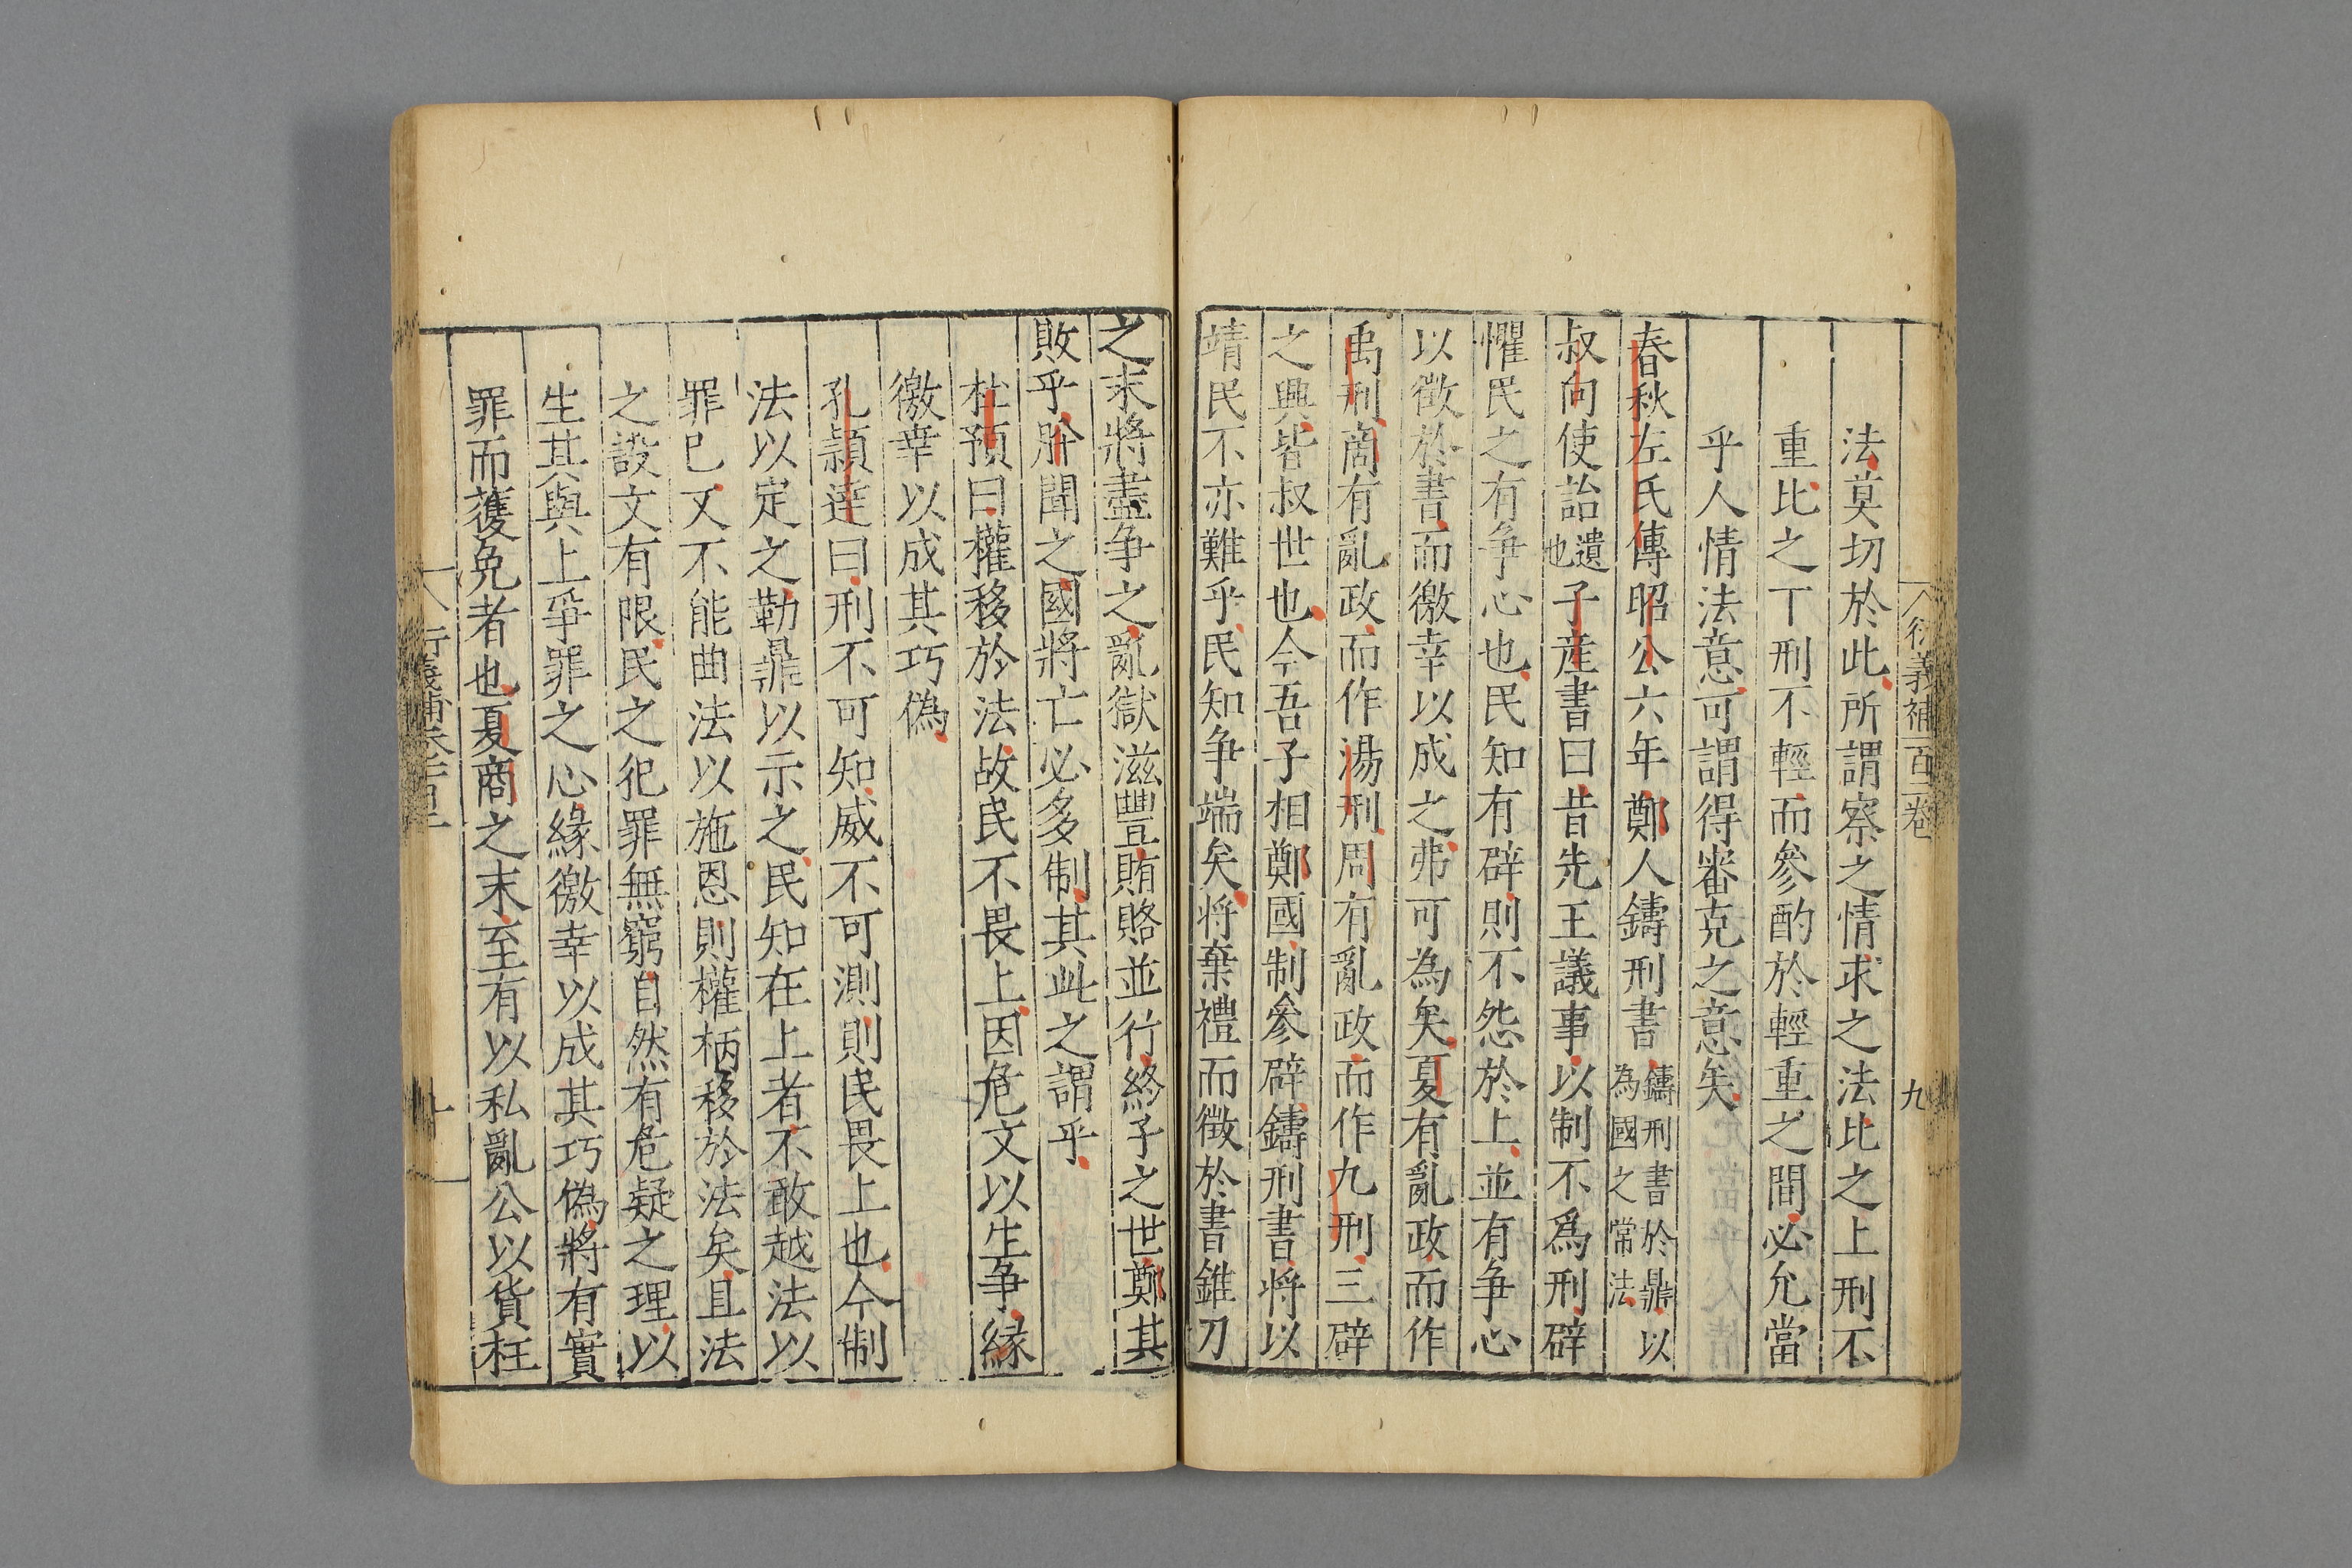 衍義補一百二卷 九
法莫切於此所謂察之情求之法比之上刑不
重比之下刑不輕而參酌於輕重之間必允當
乎人情法意可謂得審克之意矣
春秋左氏傳昭公六年鄭人鑄刑書鑄刑書於鼎以為國之常法
叔向使詒遺也子產書曰昔先王議事以制不爲刑辟
懼民之有争心也民知有辟則不怨於上並有争心
以徵於書而徼幸以成之弗可為矣夏有亂政而作
禹刑商有亂政而作湯刑周有亂政而作九刑三辟
之興皆叔世也今吾子相鄭國制參辟鑄刑書將以
靖民不亦難乎民知争端矣将棄禮而徵於書錐刀
之末將盡争之亂獄滋豐賄賂並行終子之世鄭其
敗乎肸聞之國將亡必多制其此之謂乎
杜預曰權移於法故民不畏上因危文以生争緣
徼幸以成其巧偽
孔穎達曰刑不可知威不可測則民畏上也今制
法以定之勒鼎以示之民知在上者不敢越法以
罪巳又不能曲法以施恩則權柄移於法矣且法
之設文有限民之犯罪無窮自然有危疑之理以
生其與上爭罪之心緣徼幸以成其巧偽將有實
罪而獲免者也夏商之末至有以私亂公以貨枉